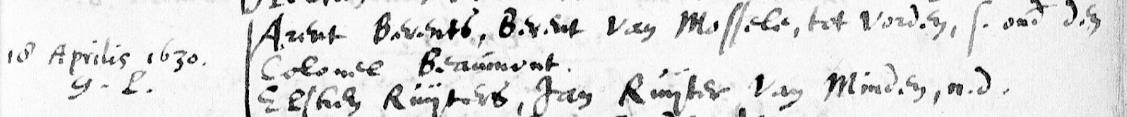 Arent Berents, Berent van Mossele, tot Vorden, s. ond den
18 Aprilis 1630.
Colonel Beaumont.
G. L.
Elsken Ruijters, Jan Ruijter van Minden, n.d.